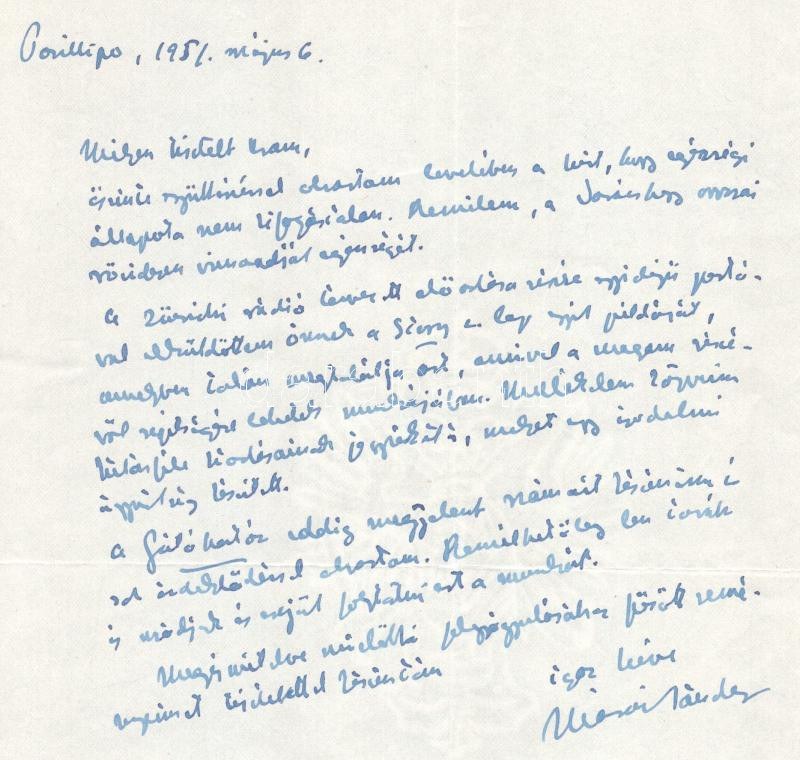 Posillipo, 1951. május 6.
Mélyen tisztelt Uram,
őszinte együttérzéssel olvastam levelében a hírt, hogy egészségi
állapota nem kifogástalan. Remélem, a jó orvosai
rövidesen visszaadják egészségét.
A zürichi rádió tervezett előadása részére egyidejű postá-
val elküldöttem önnek a egyik példányát,
amelyben talán megtalálja azt, amivel a magam részé-
ről segítségére lehetek munkájában. Mellékelem
kiadásainak jegyzékét, melyet egy irodalmi
ügynökség készített.
A Látóhatár eddig megjelent számait köszönöm
érdeklődéssel olvastam. Remélhetőleg lesz
és módjuk és erejük folytatni ezt a munkát.
Megismételve mielőbbi felgyógyulásához fűzött remé-
nyeimet tisztelettel köszöntöm
igaz híve
Márai Sándor